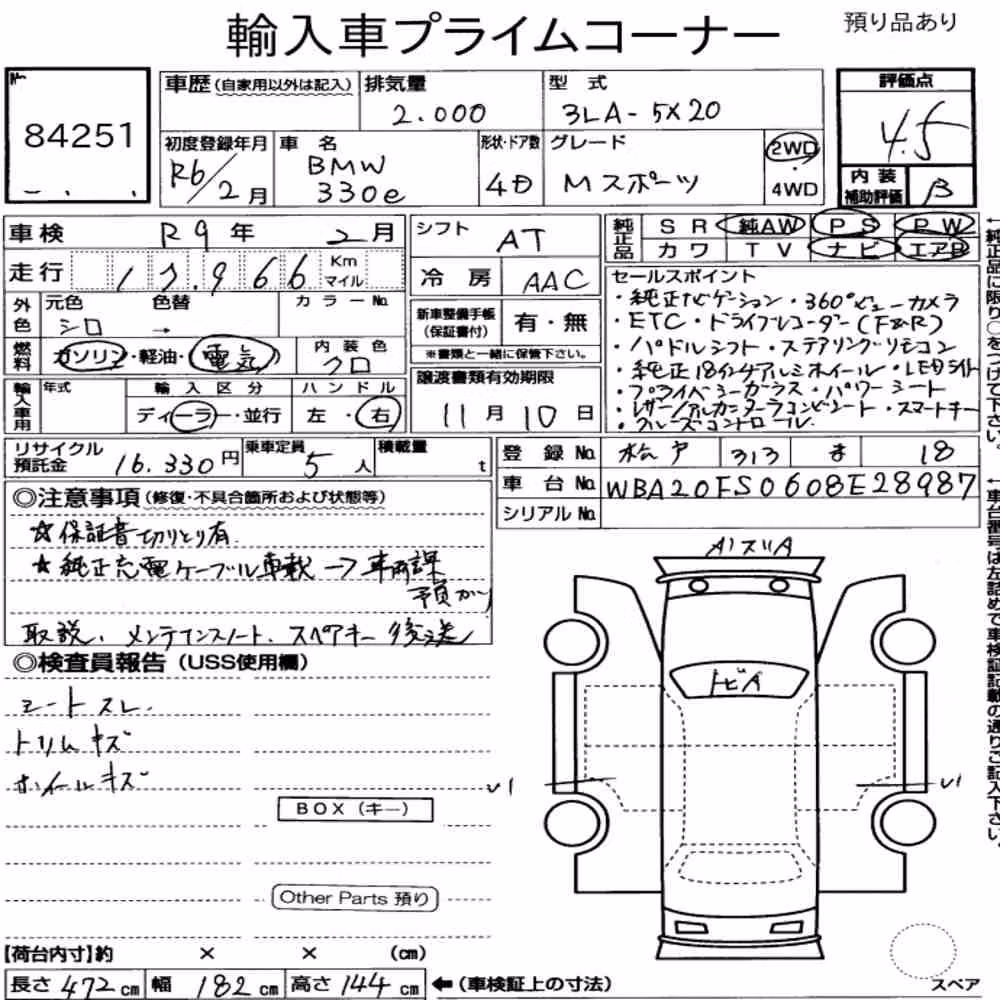 輸入車プライムコーナー 預り品あり
No. 84251
車歴(自家用以外は記入) 排気量 2.000 型式 3LA-5X20
評価点 4.5
初度登録年月 R6/2月 車名 BMW 330e 形状・ドア数 4D グレード Mスポーツ 2WD・4WD
内装補助評価 B
車検 R9年 2月
シフト AT
純正品 SR 純AW PS PW
カワ TV ナビ エアB
走行 17.966 Km マイル
冷房 AAC
外色 元色 シロ 色替 → カラーNo.
新車整備手帳(保証書付) 有・無
※書類と一緒に保管下さい。
燃料 ガソリン・軽油・電気 内装色 クロ
輸入車用 年式 輸入区分 ディーラー・並行 ハンドル 左・右
譲渡書類有効期限
11月10日
セールスポイント
・純正ナビゲーション・360°ビューカメラ
・ETC・ドライブレコーダー(F&R)
・パドルシフト・ステアリングリモコン
・純正18インチアルミホイール・LEDライト
・プライベシーガラス・パワーシート
・レザー/アルカンターラコンビシート・スマートキー
・クルーズコントロール
リサイクル預託金 16.330円 乗車定員 5人 積載量 t
登録No. 松戸 313 ま 18
車台No. WBA20FS0608E28987
シリアルNo.
◎注意事項(修復・不具合箇所および状態等)
☆保証書切りとり有.
★純正充電ケーブル車載→車両課
予預かり
取説、メンテナンスノート、スペアキー後送
◎検査員報告(USS使用欄)
シートスレ.
トリムキズ
ホイールキズ
BOX(キー)
Other Parts 預り
A1スリA
トビA
U1
U1
【荷台内寸】約 × × (cm)
長さ472cm 幅182cm 高さ144cm ←(車検証上の寸法)
スペア
←純正品に限り○をつけて下さい。
←車台番号は左詰めで車検証記載の通りご記入下さい。